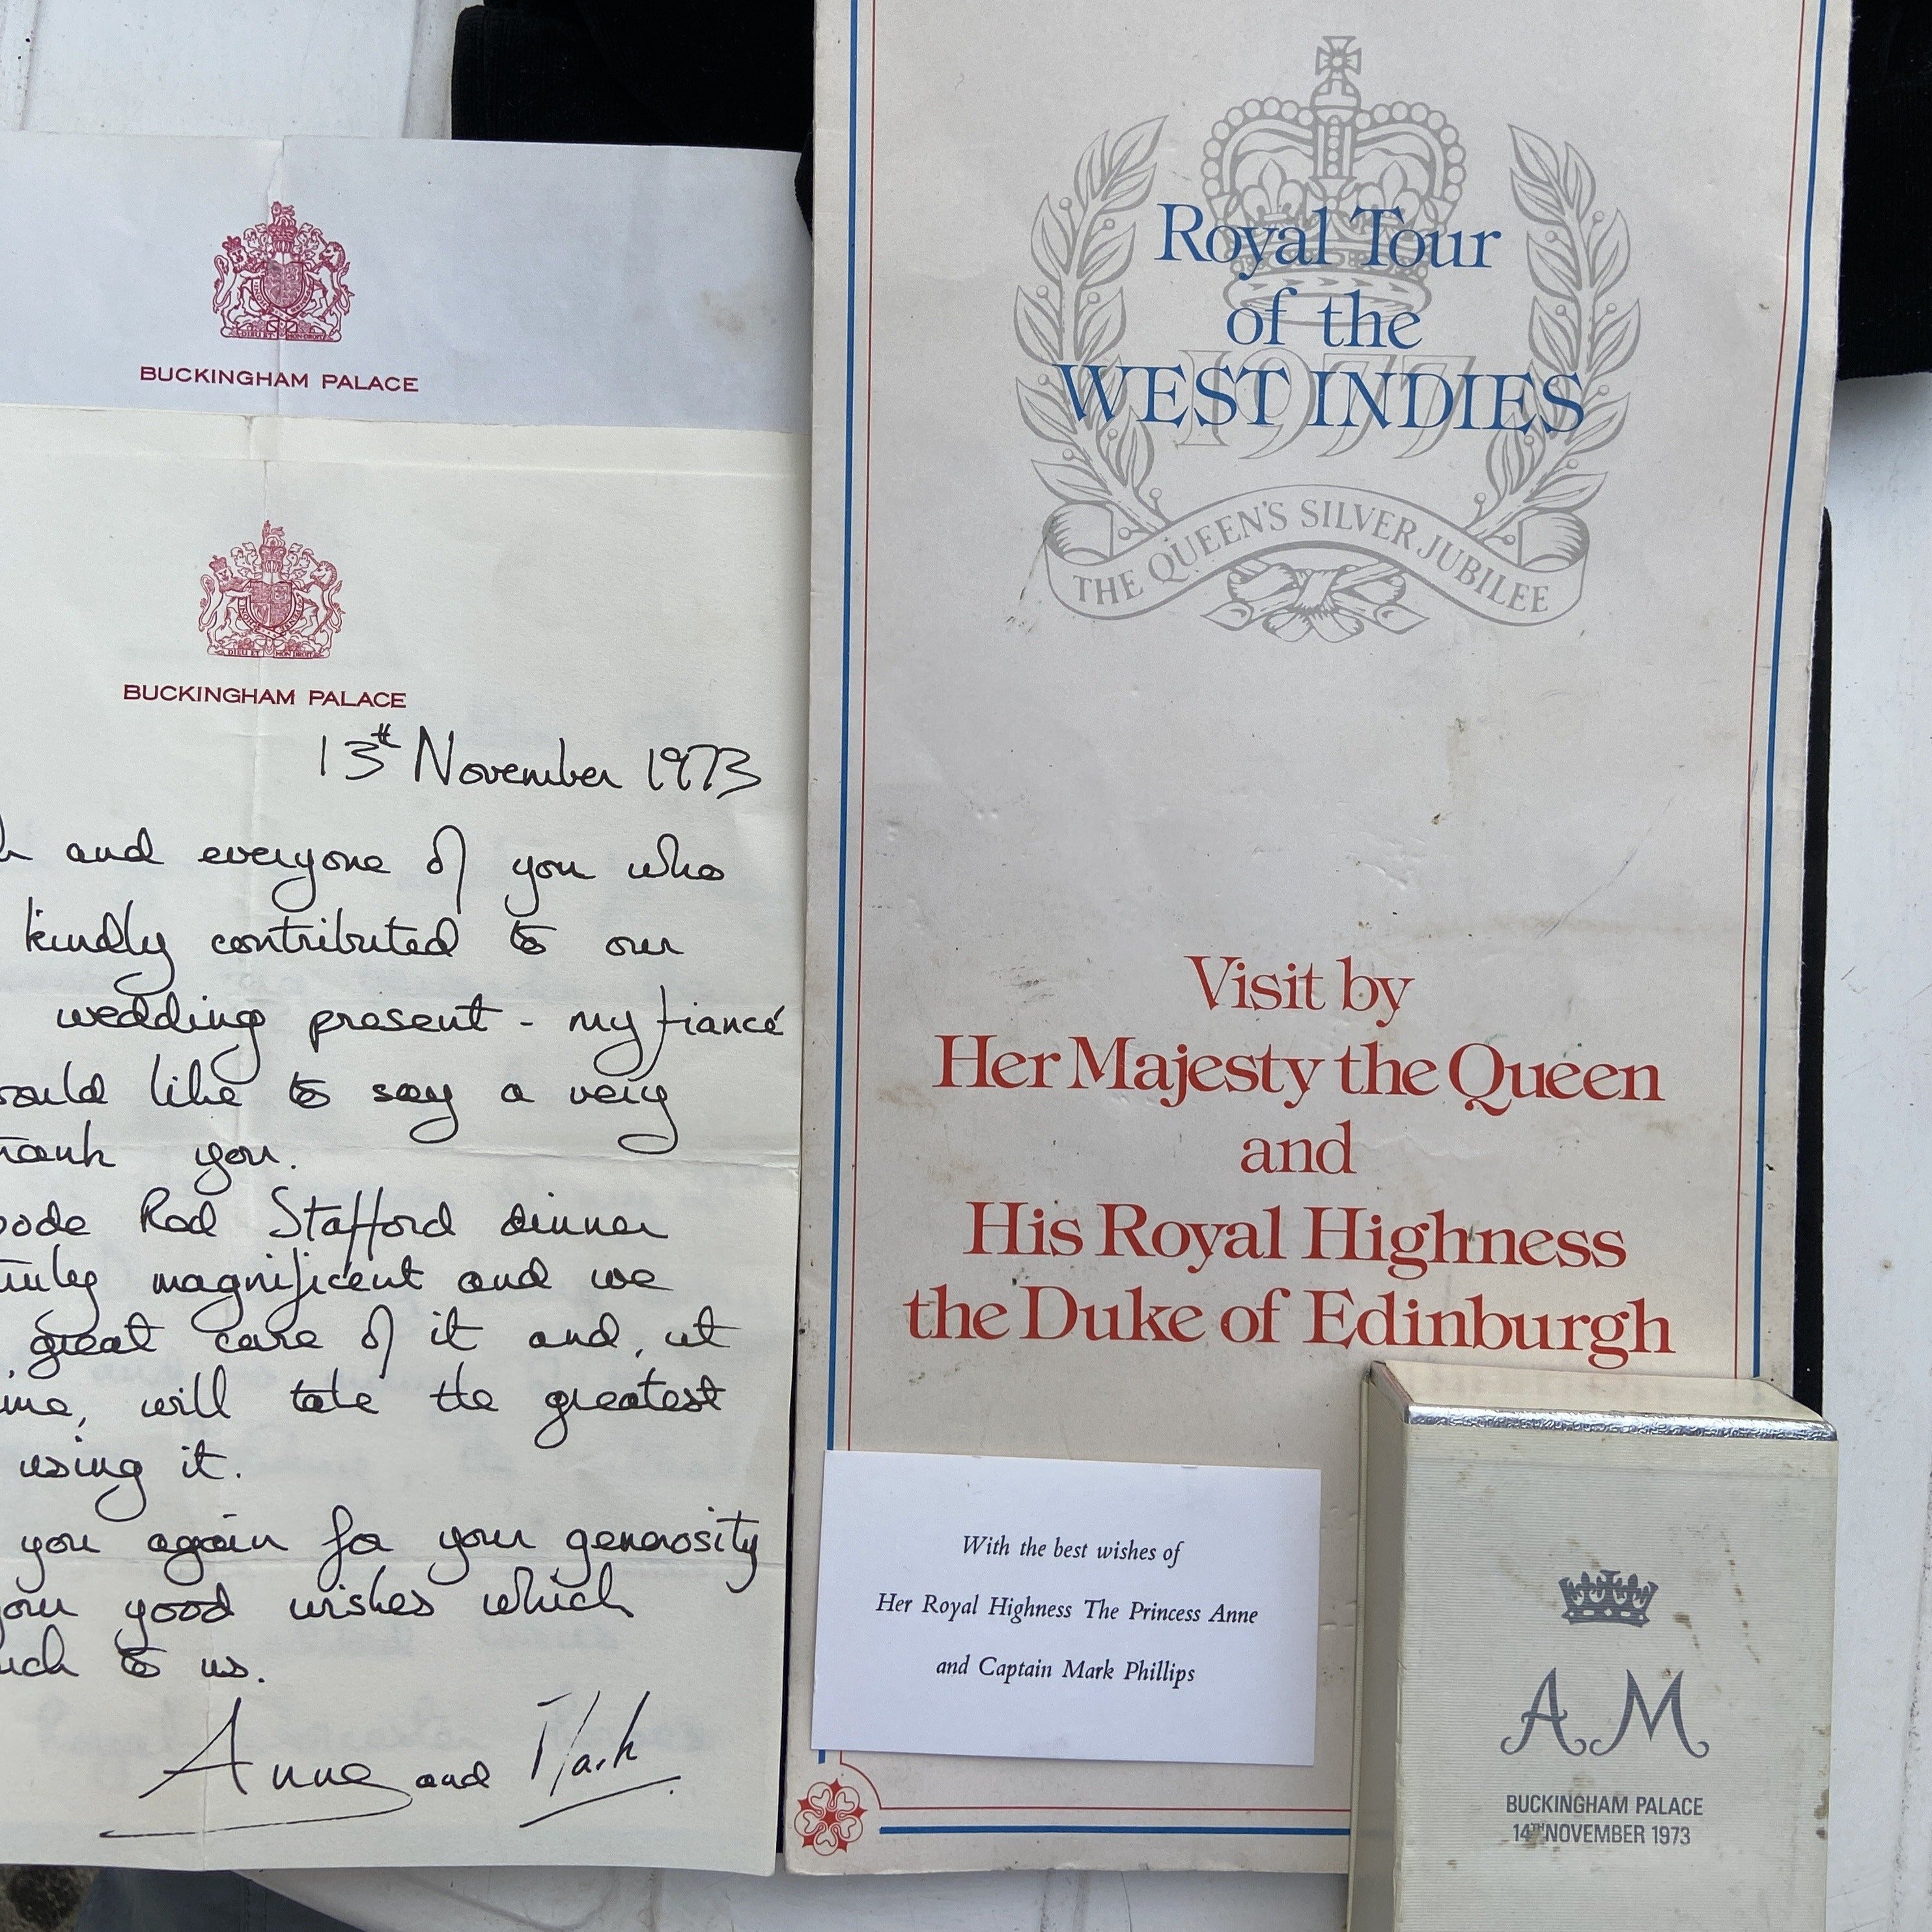 BUCKINGHAM PALACE
BUCKINGHAM PALACE
13th November 1973
and everyone of you who
kindly contributed to our
wedding present - my fiancé
would like to say a very
thank you.
Rod Stafford dinner
truly magnificent and we
great care of it and, at
time, will take the greatest
using it.
you again for your generosity
your good wishes which
much to us.
Anne and Mark
Royal Tour
of the
WEST INDIES
1977
THE QUEEN'S SILVER JUBILEE
Visit by
Her Majesty the Queen
and
His Royal Highness
the Duke of Edinburgh
With the best wishes of
Her Royal Highness The Princess Anne
and Captain Mark Phillips
A M
BUCKINGHAM PALACE
14TH NOVEMBER 1973